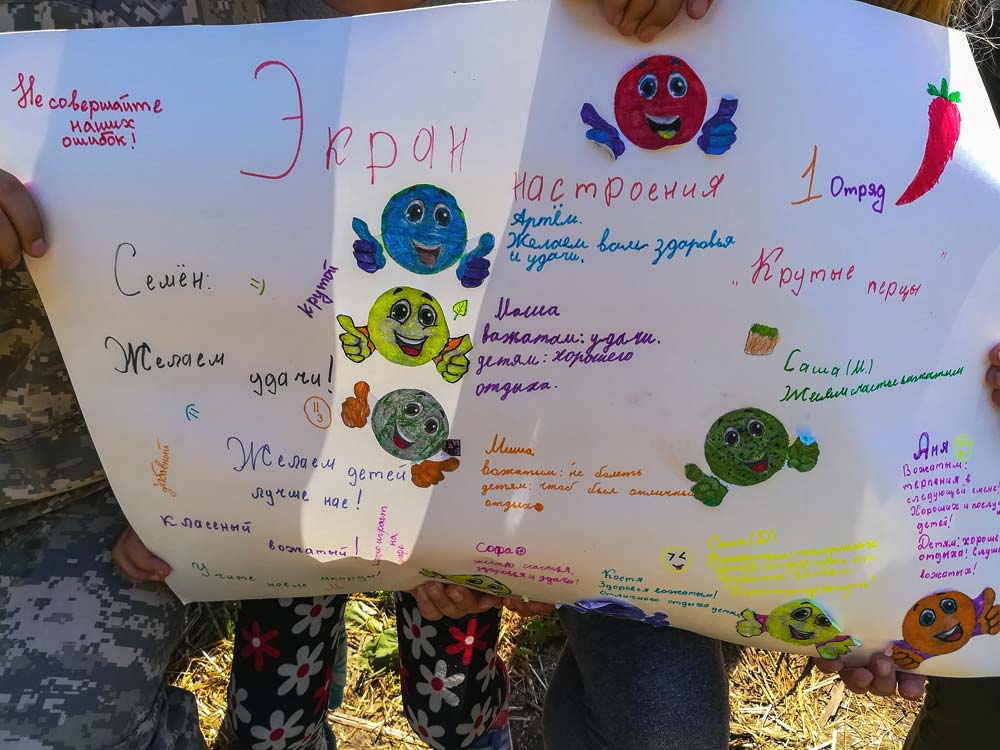 Не совершайте
наших
ошибок!
Экран
настроения
1 Отряд
"Крутые перцы"
Семён:
Желаем
удачи!
крутой
Артём.
Желаем вам здоровья
и удачи.
Маша
важатам: удачи.
детям: хорошего
отдыха.
Саша (М.)
Желаем счастье важатым
Желаем детей
лучше нас!
классный
вожатый!
Учите новые акорды!
Миша
вожатим: не болеть
детям: чтоб был отличный
отдых
Софа
желаю счастья,
здоровья и удачи!
Костя
Здоровья вожатым!
Отличного отдыха детям
Саша (Д)
Аня
Вожатым:
терпения в
следующей смене!
Хороших и послу
детей!
Детям: хороше
отдыха! Слуша
вожатых!